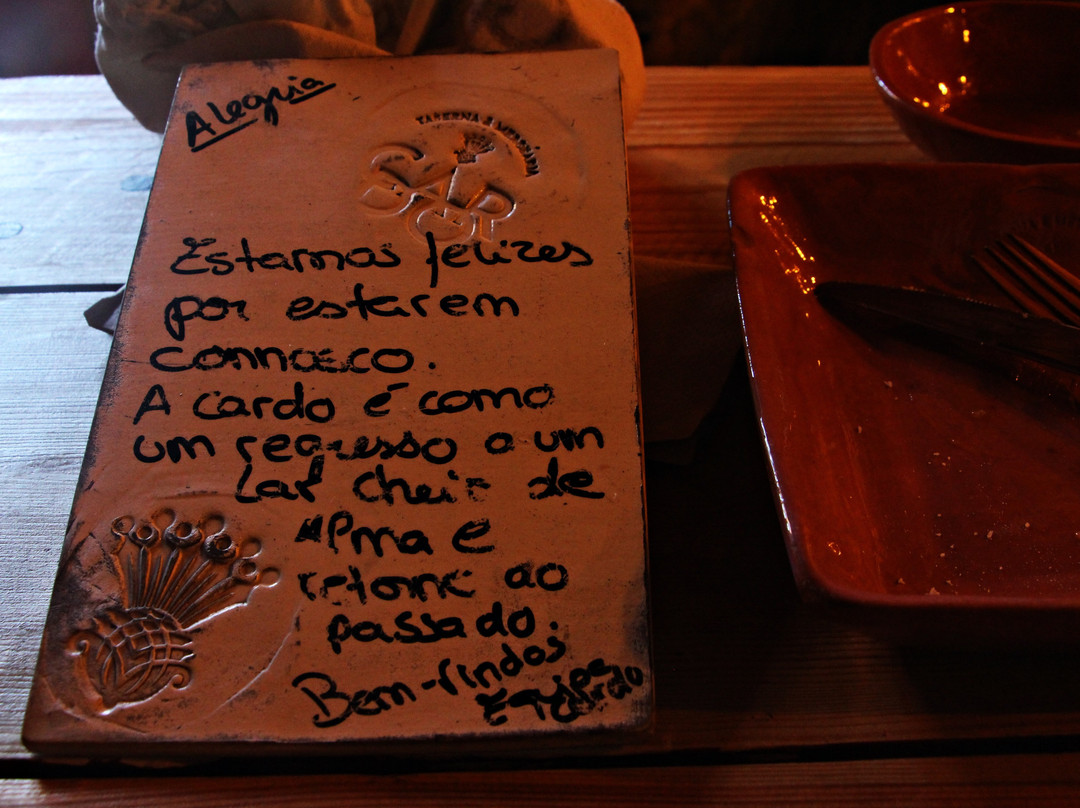 Alegria
TABERNA
CARDO
Estamos felizes
por estarem
connosco.
A cardo é como
um regresso a um
Lar cheio de
Alma e
retorno ao
passado.
Bem-vindos
Equipe Cardo